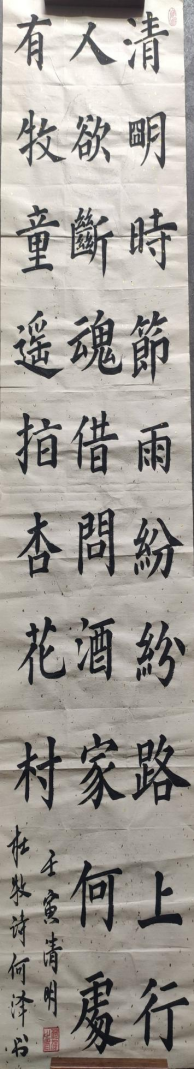 清眀時節雨紛紛路上行
人欲斷魂借問酒家何處
有牧童遥指杏花村
壬寅清明
杜牧诗何泽书